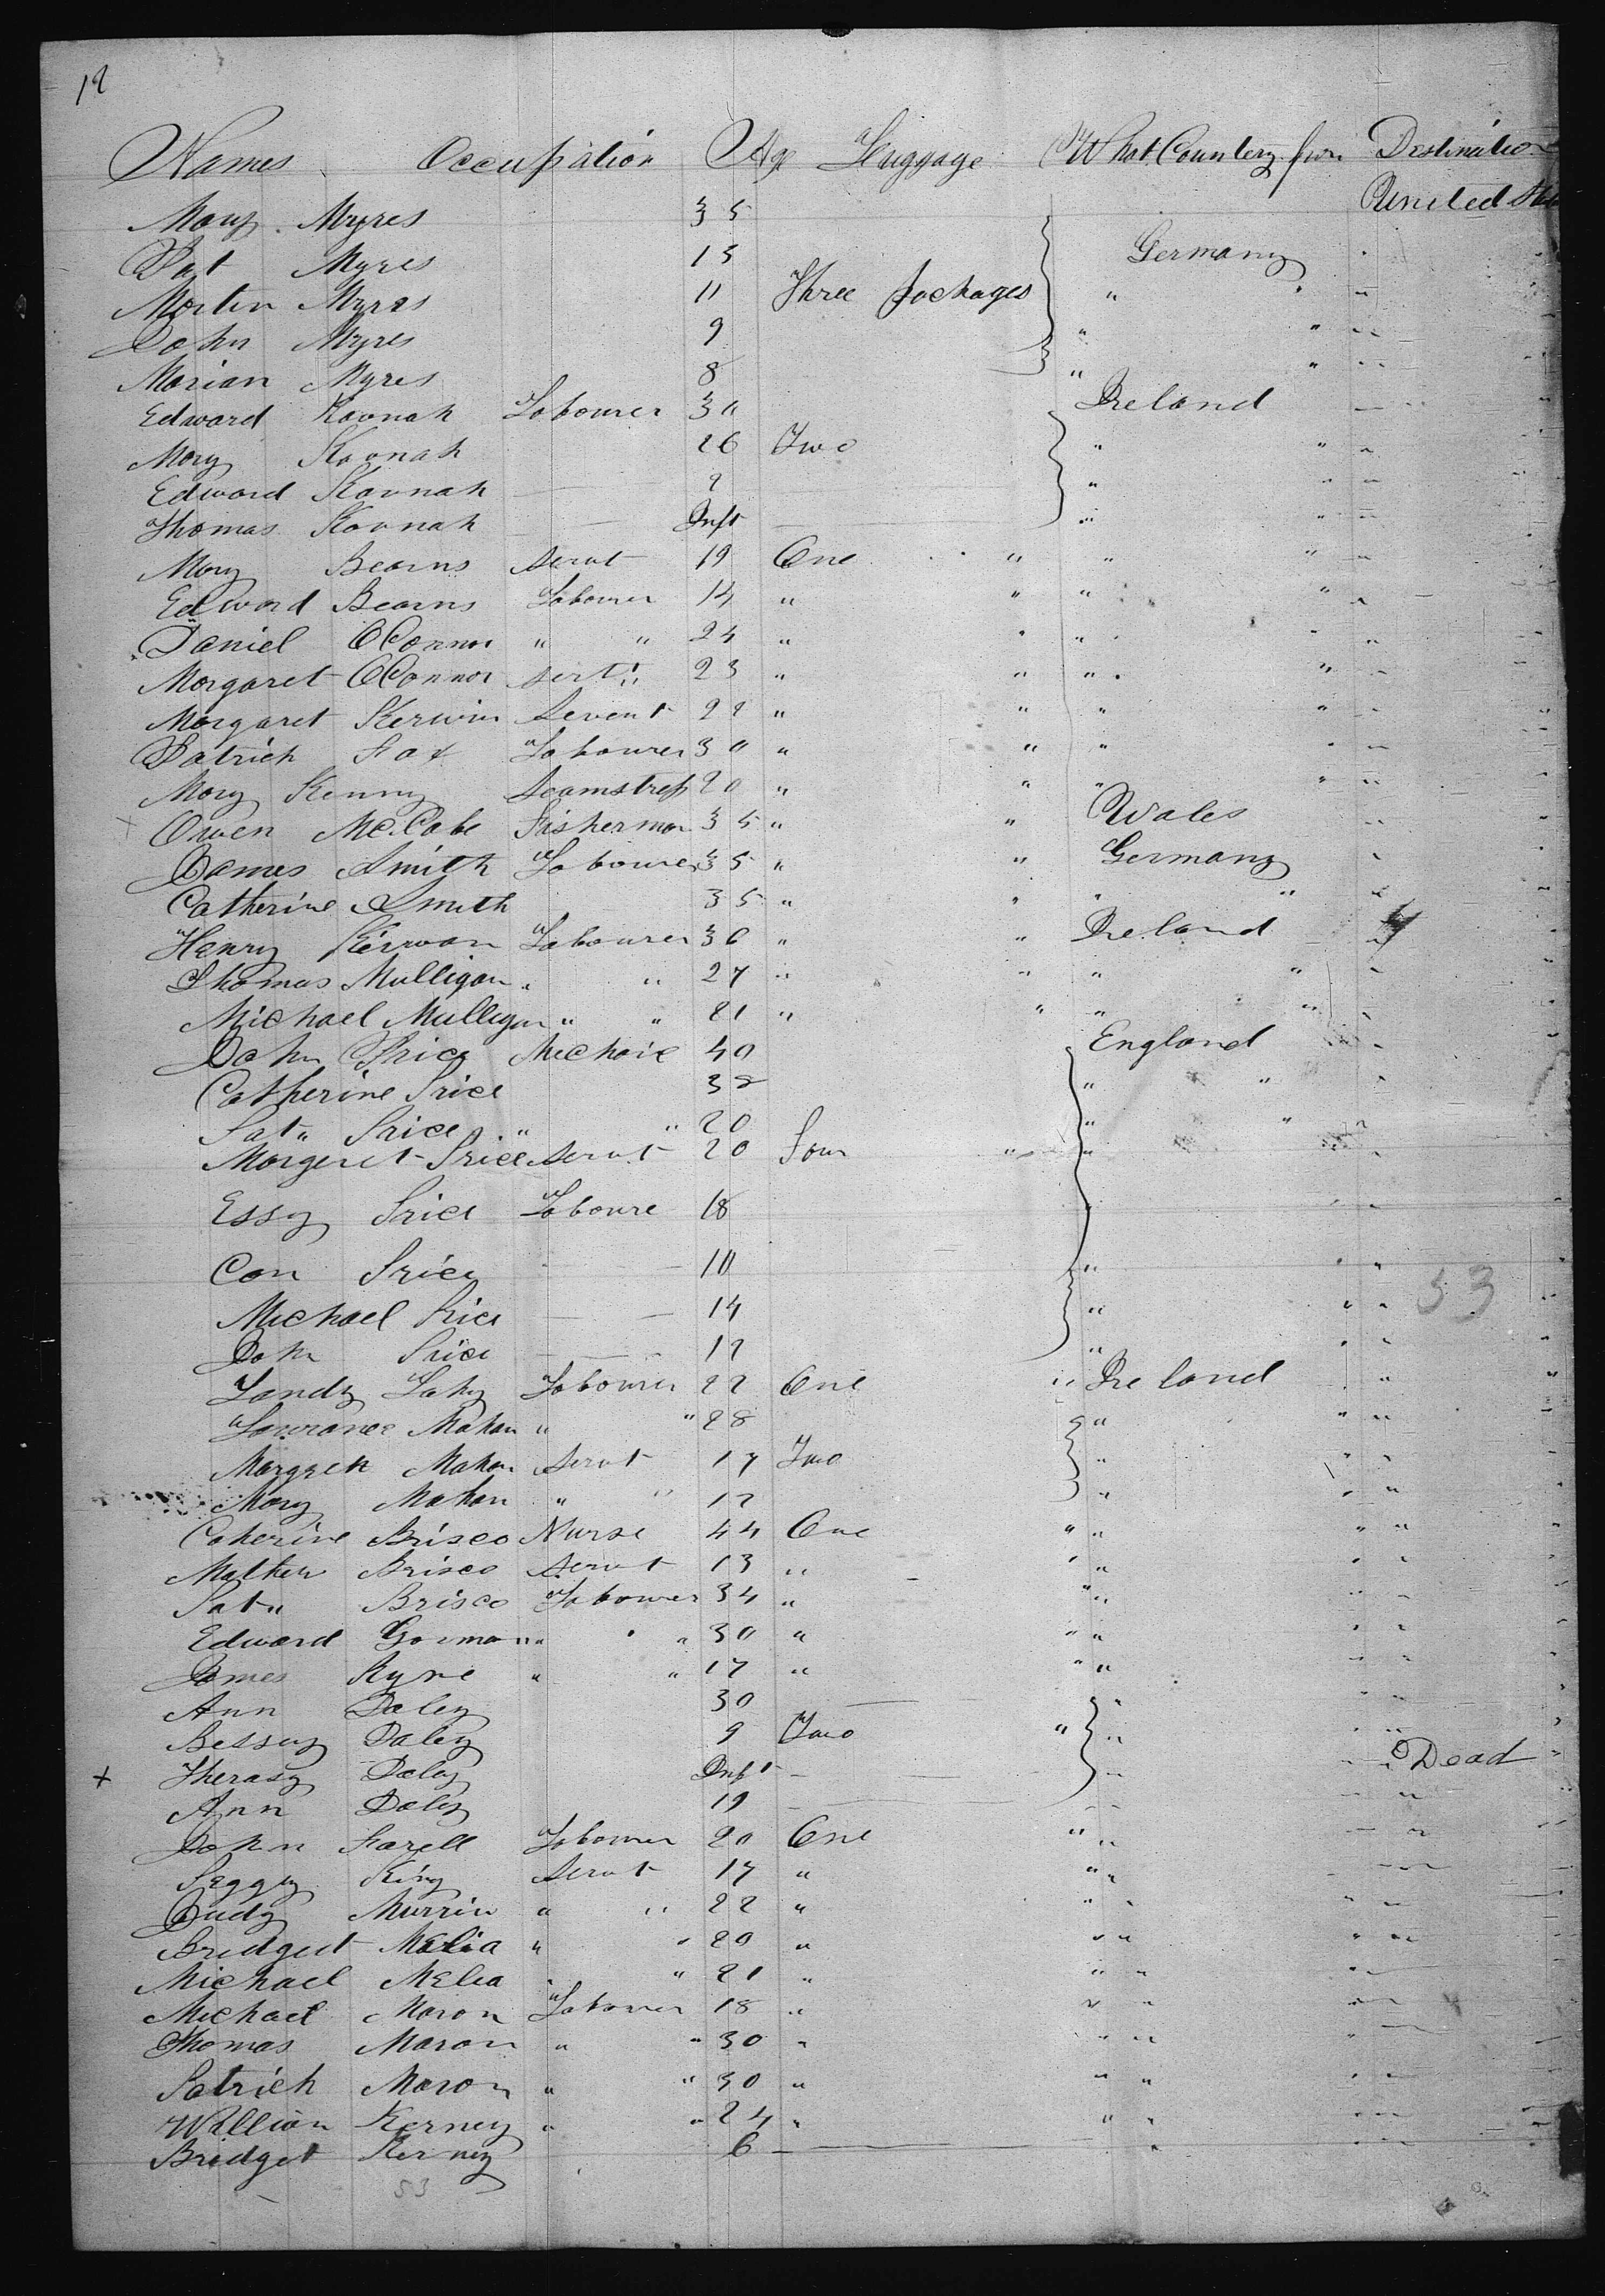 12
Names Occupation Age Luggage What Country from Destination
United
Mary Myres 35
Pat Myres 13 Germany "
Martin Myres 11 Three packages " " "
John Myres 9 " " "
Marian Myres 8 " " "
Edward Kavnah Labourer 30 Ireland "
Mary Kavnah 26 Two " " "
Edward Kavnah 2 " " "
Thomas Kavnah Inft " " "
Mary Bearns Servt 19 One " " " "
Edward Bearns Labourer 14 " " " " "
Daniel OConnor " " 24 " " " " "
Margaret OConnor Sert " 23 " " " " "
Margaret Kerwin Sevent 22 " " " " "
Patrick Fox Labourer 30 " " " " "
Mary Kenny Seamstress 20 " " " " "
Owen McCabe Fisherman 35 " " Wales "
James Smith Labourer 35 " " Germany "
Catherine Smith 35 " " " " "
Henry Kerwan Labourer 36 " " Ireland "
Thomas Mulligan " " 27 " " " " "
Michael Mulligan " " 21 " " " " "
John Price Mechaic 40 England "
Catherine Price 38 " " "
Pat " Price " " 20 " " "
Margeret Price Servt 20 Four " " "
Essy Price Laboure 18 " " "
Con Price 10 " " "
Michael Price 14 " " " 53
John Price 12 " " "
Landy Lahy Labourer 22 One " Ireland "
Lawrance Mahan " " 28 " " "
Margret Mahan Servt 17 Two " " "
Mary Mahan " " 12 " " "
Catherine Brisco Nurse 44 One " " " "
Mathew Brisco Servt 13 " " " " "
Pat " Brisco Labourer 34 " " " " "
Edward Gorman " " 30 " " " " "
James Kyne " " 17 " " " " "
Ann Daley 30 " " "
Bessey Daley 9 Two " " " "
+ Therasy Daley Inft " " " Dead
Ann Daley 19 " " "
John Farell Labourer 20 One " " " "
Peggy King Servt 17 " " " " "
Judy Murrin " " 22 " " " " "
Bridget Melia " " 20 " " " " "
Michael Melia " " 21 " " " " "
Michael Maron Labourer 18 " " " " "
Thomas Maron " " 30 " " " " "
Patrick Maron " " 30 " " " " "
William Kerney " " 24 " " " " "
Bridget Kerney 6 " " "
53